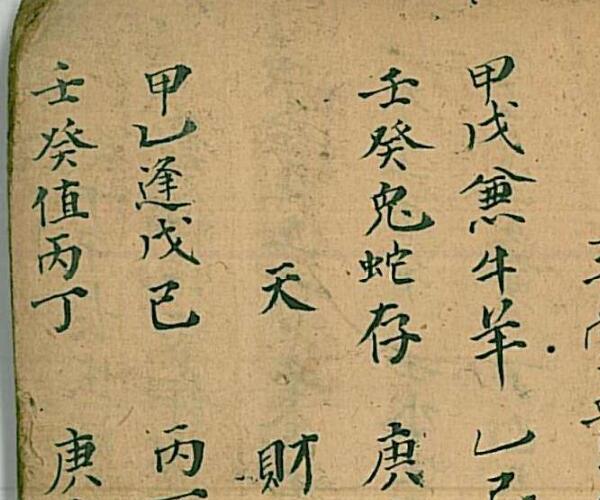 甲戊兼牛羊 乙己
壬癸兔蛇存 庚
天財
甲乙逢戊己 丙丁
壬癸值丙丁 庚